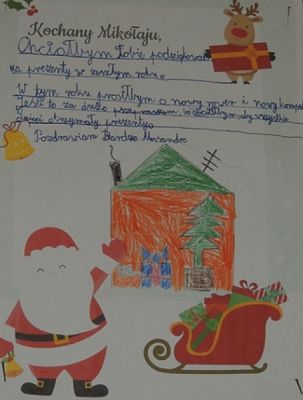 Kochany Mikołaju,
Chciałbym tobie podziękować
za prezenty w zeszłym roku.
W tym roku prosiłbym o nowy rower i nowy
Jeśli to za dużo przepraszam, bo chciałbym aby wszystkie
dzieci otrzymały prezenty.
Pozdrawiam Bardzo